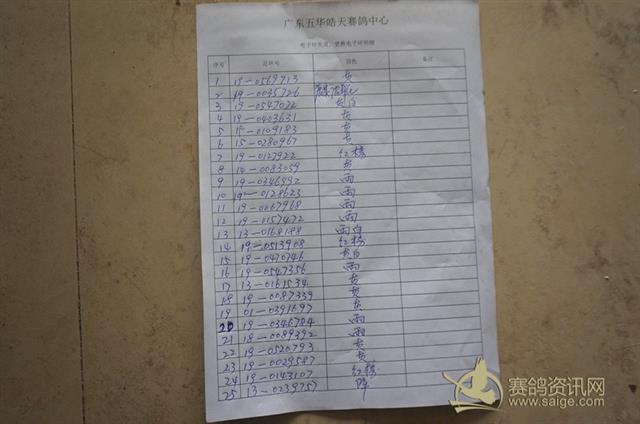 广东五华皓天赛鸽中心
电子环失灵、更换电子环明细
序号 足环号 羽色 备注
1 19-0569713 灰
2 19-0035726
3 19-0547022 灰白
4 19-0403631 灰
5 15-0109183 灰
6 15-0280967 灰
7 19-0127922 红楞
8 14-0083059 灰
9 19-0346992 雨
10 19-0128623 雨
11 19-0067968 雨
12 19-0157472 雨
13 13-0168188 雨白
14 19-0513908 红楞
15 19-0470746 灰白
16 19-0547356 雨
17 13-0161534 灰
18 19-0087339 灰
19 01-0391697 灰
20 19-0346784 雨
21 18-0089392 雨
22 19-0520793 灰
23 19-0029587 灰
24 19-0143107 红楞
25 13-0239757
赛鸽资讯网
www.saige.com